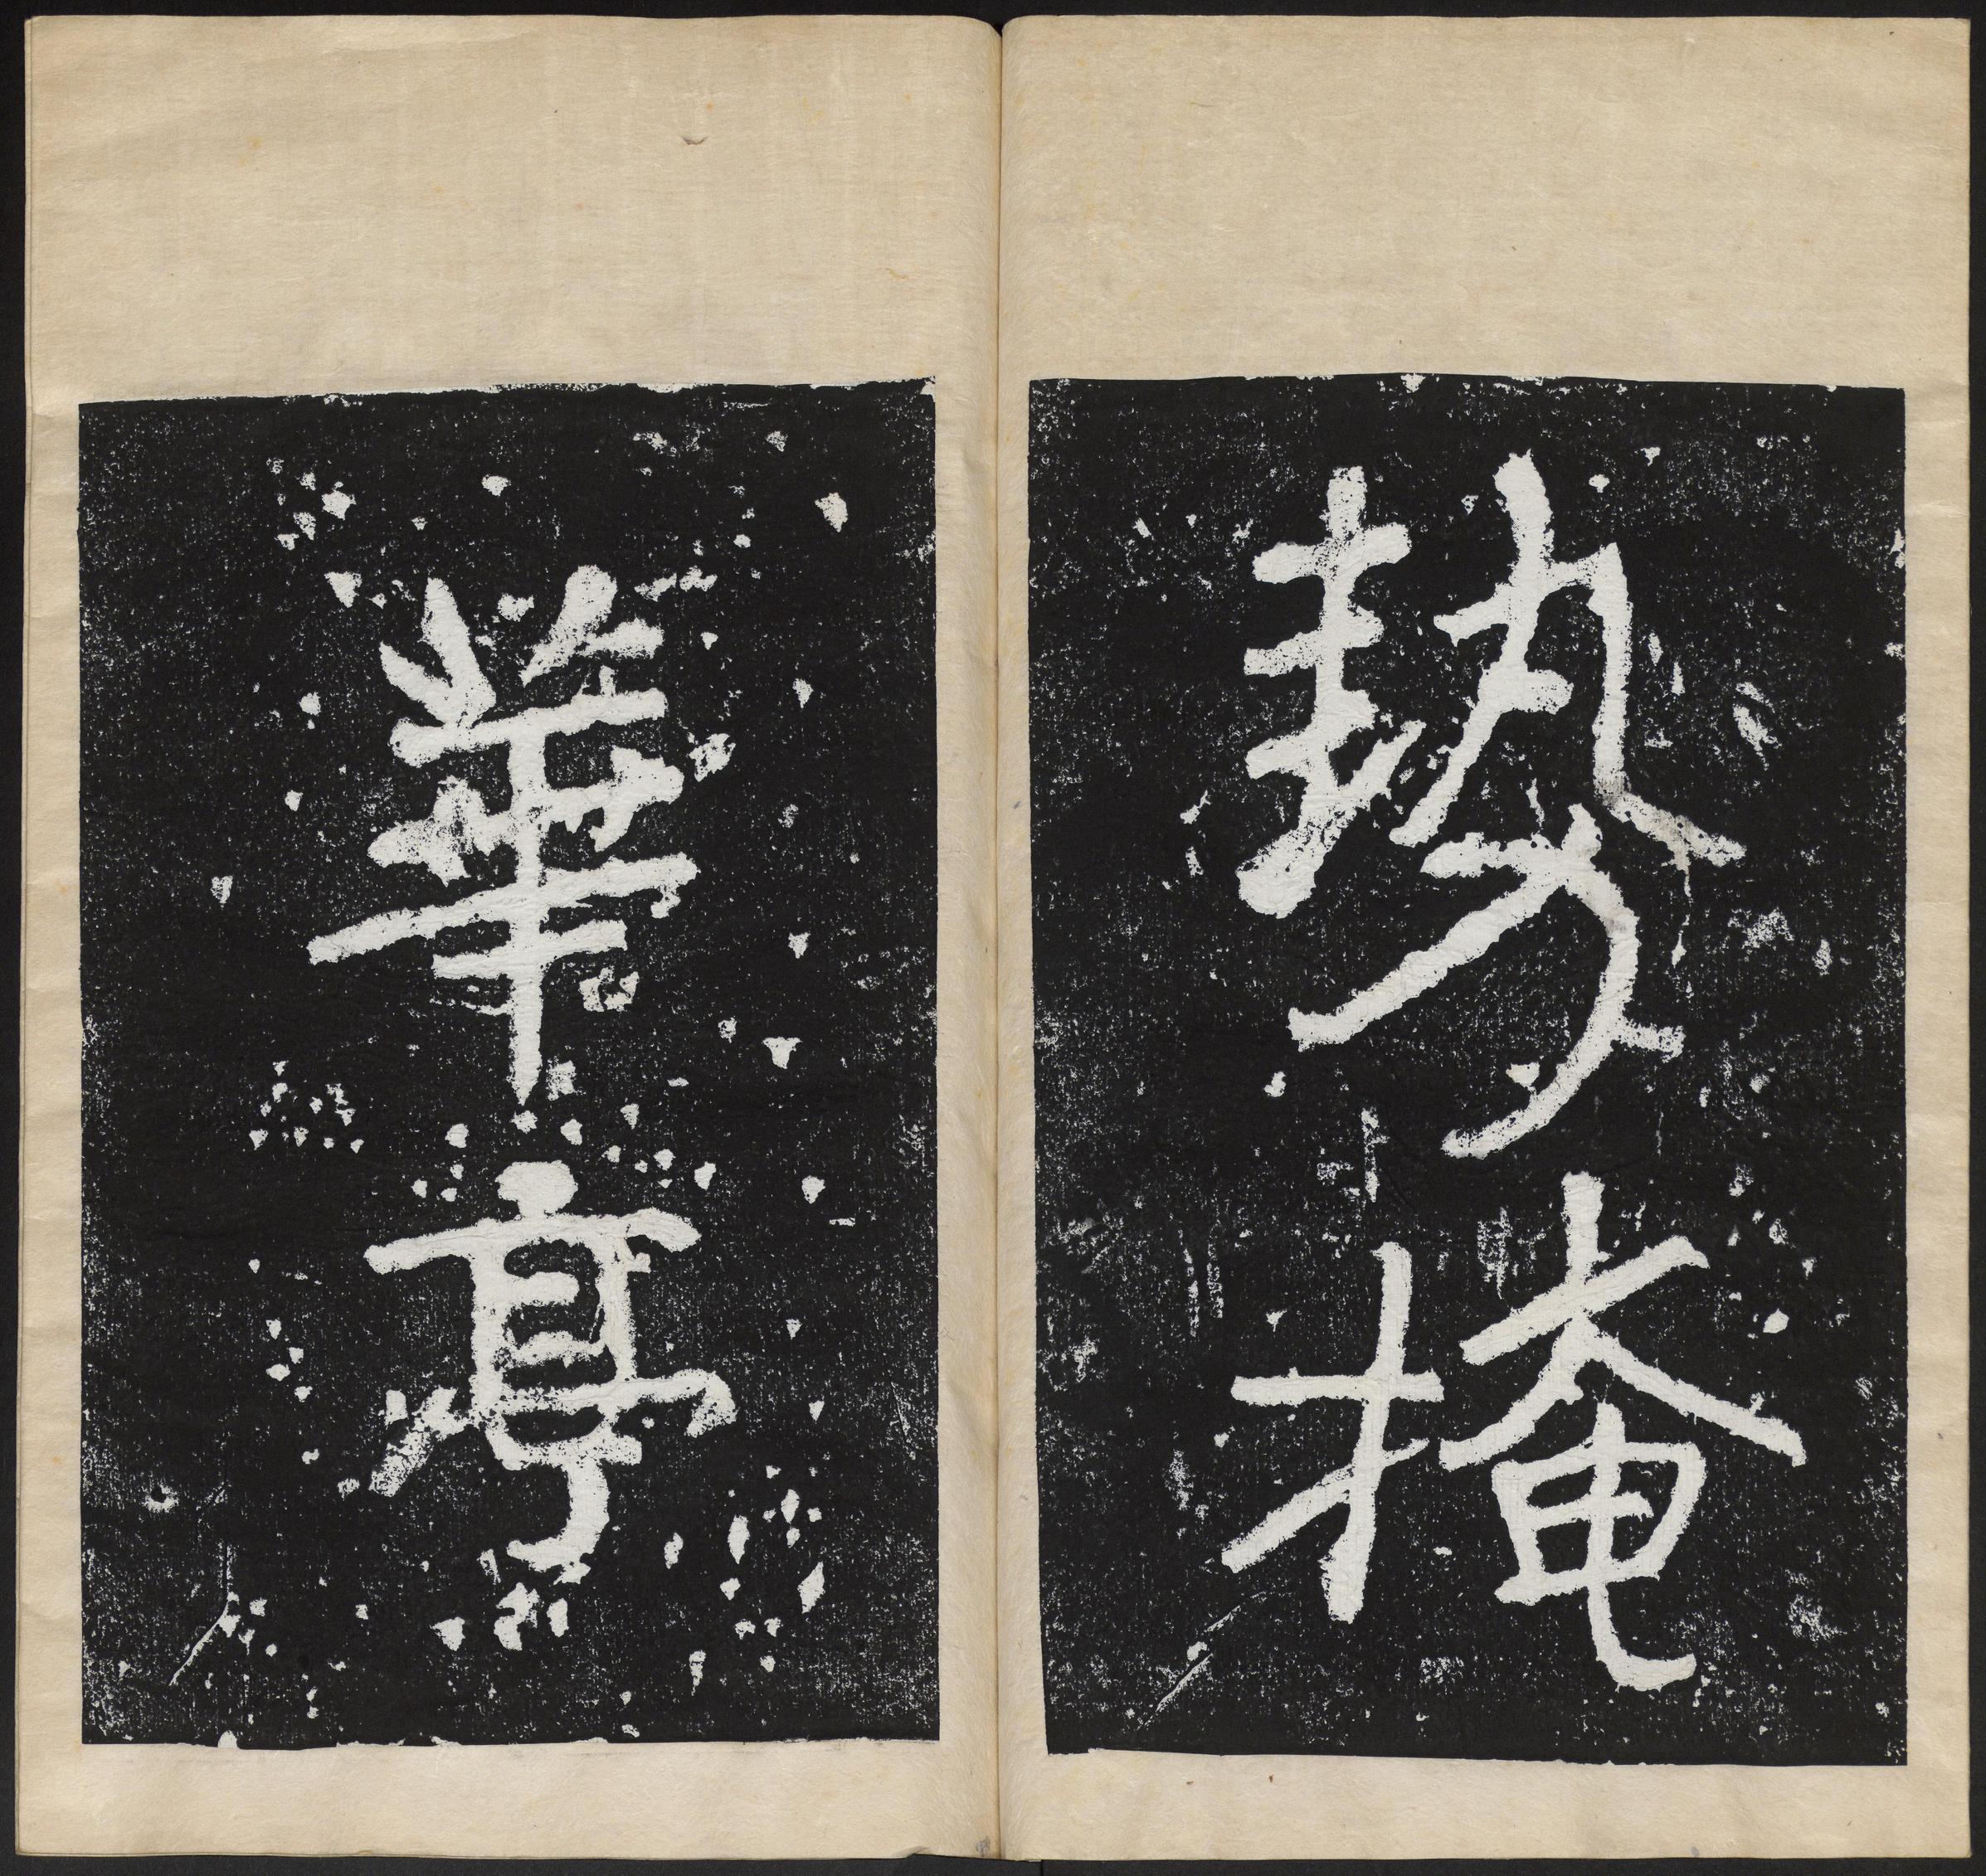 勢掩
華亭